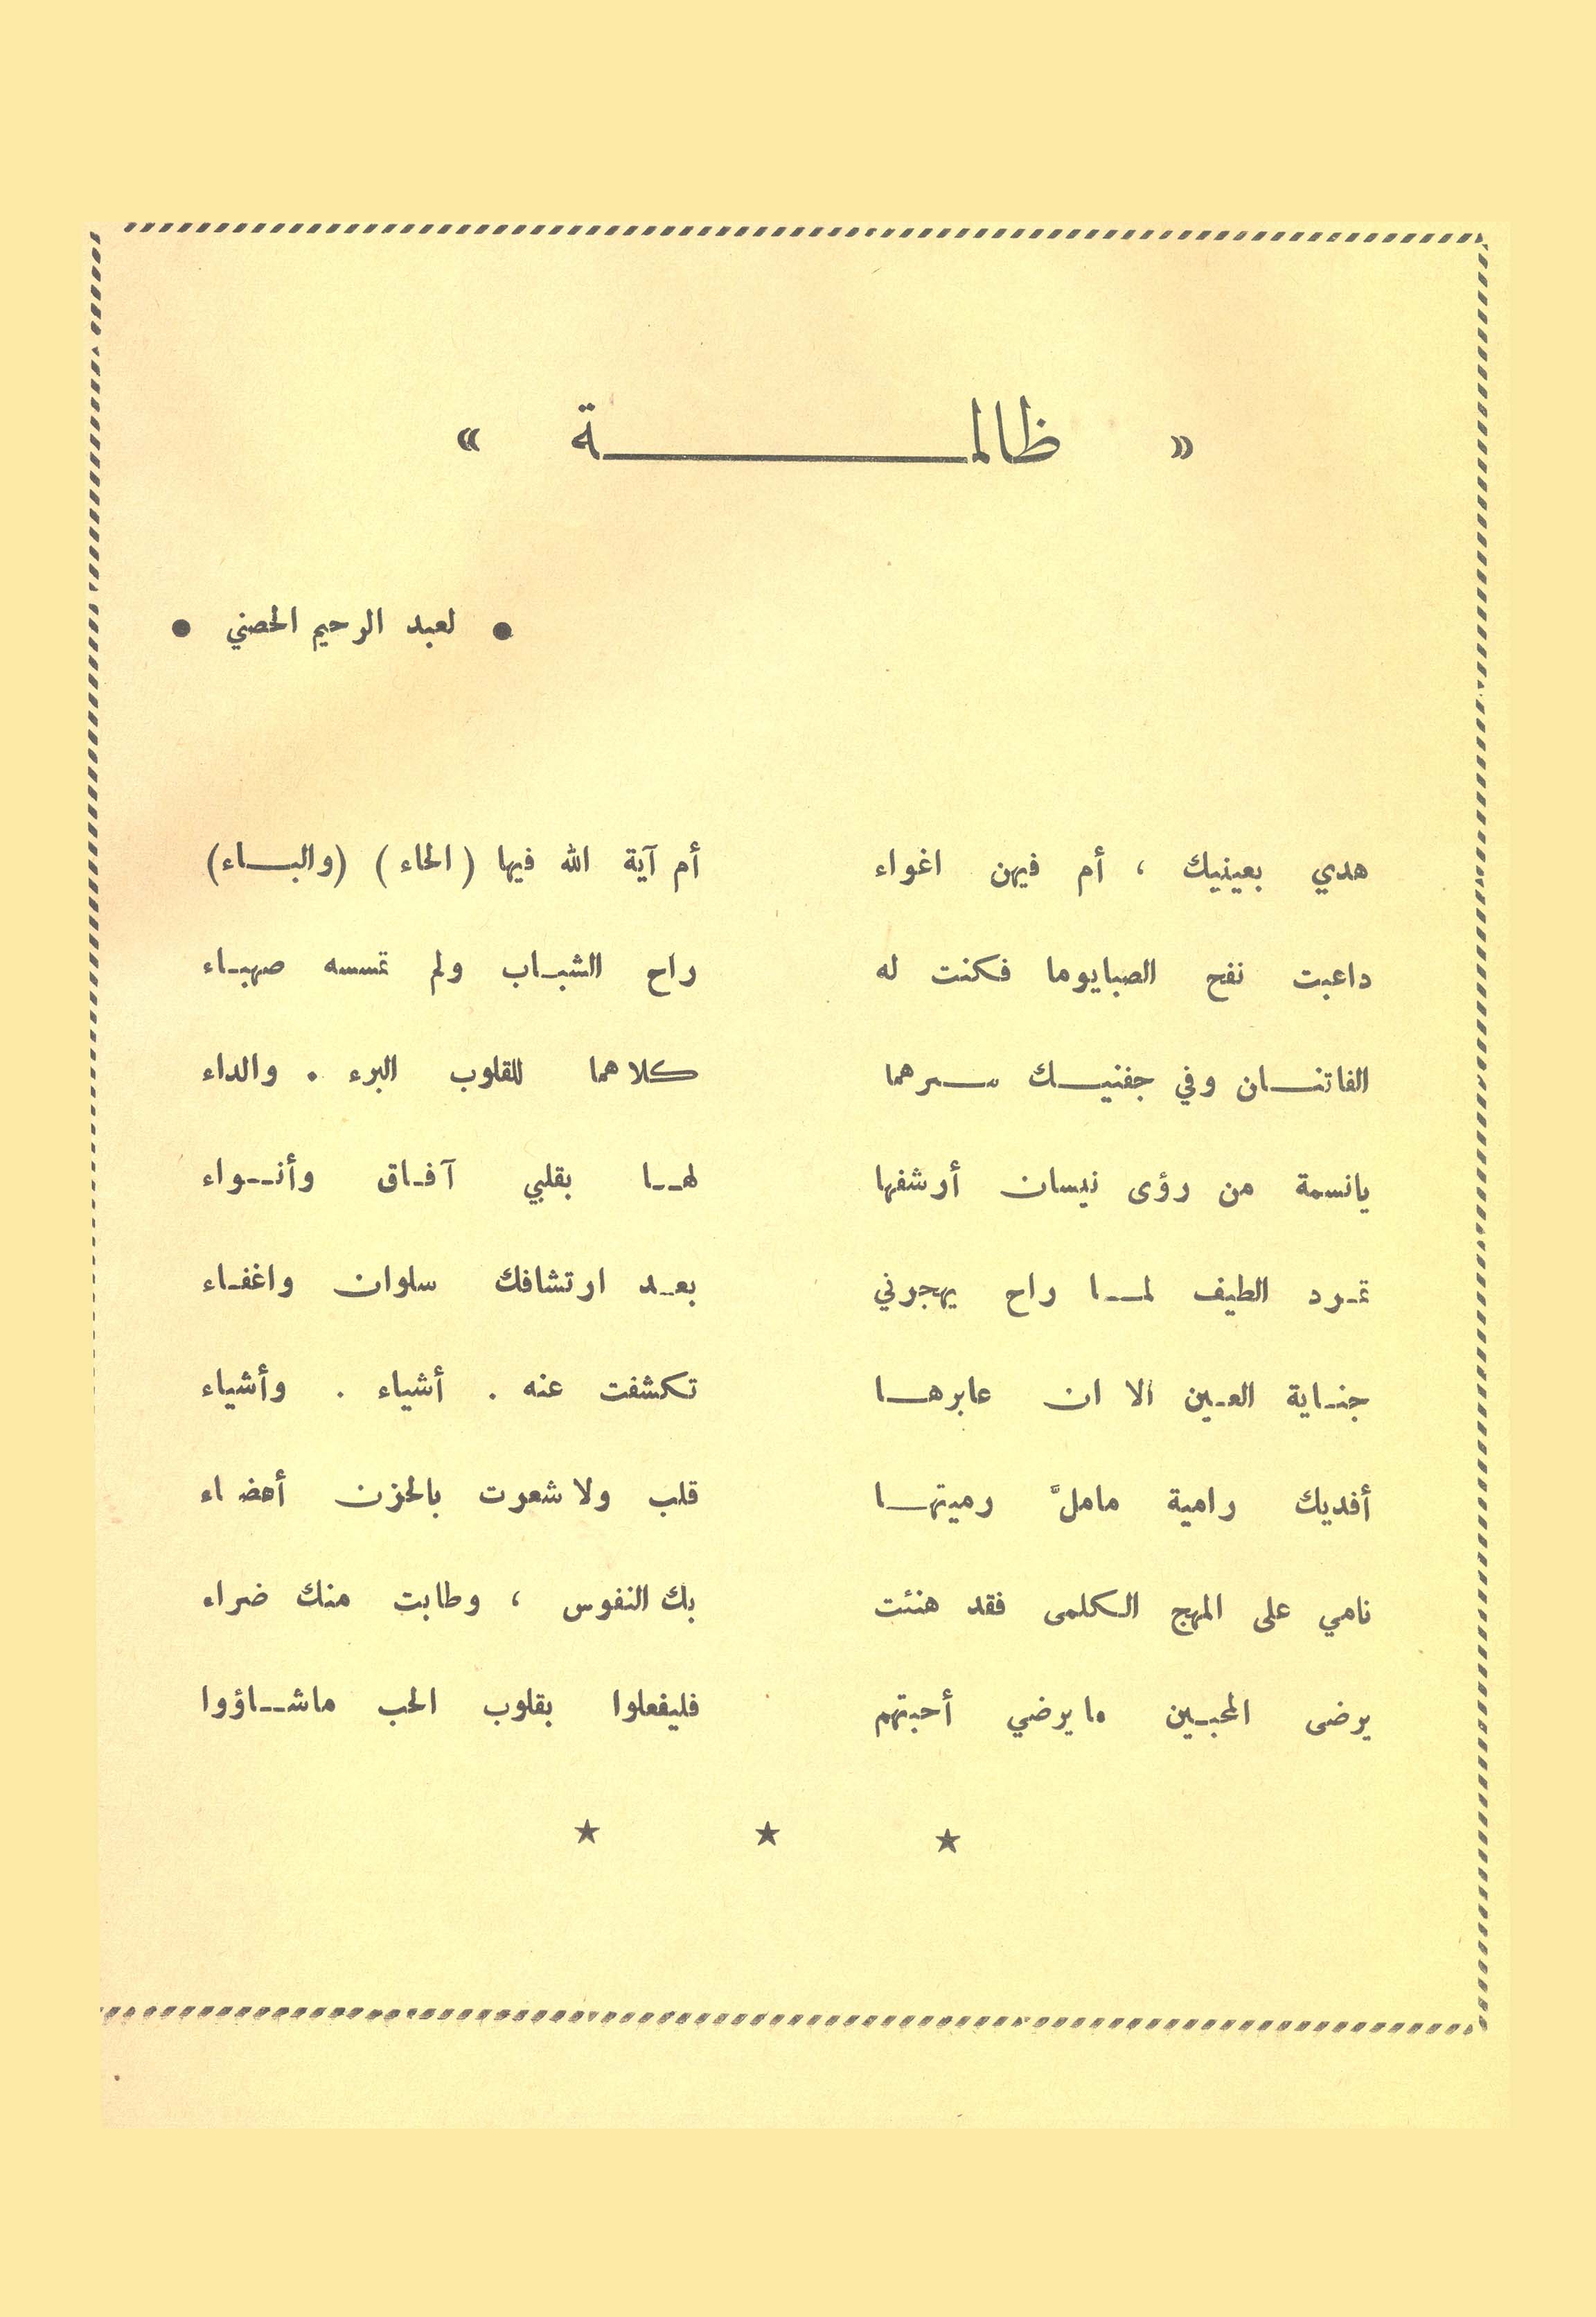 « ظالمة »
• لعبد الرحيم الحصني •
هدي بعينيك ، أم فيهن اغواء أم آية الله فيها (الحاء) (والباء)
داعبت نفح الصبايوما فكنت له راح الشباب ولم تمسسه صهباء
الفاتنان وفي جفنيك سرهما كلاهما للقلوب البرء . والداء
يانسمة من رؤى نيسان أرشفها لها بقلبي آفاق وأنواء
تمرد الطيف لما راح يهجرني بعد ارتشافك سلوان واغفاء
جناية العين الا ان عابرها تكشفت عنه . أشياء . وأشياء
أفديك رامية ماملَّ رميتها قلب ولا شعرت بالحزن أعضاء
نامي على المهج الكلمى فقد هنئت بك النفوس ، وطابت منك ضراء
يرضى المحبين ما يرضي أحبتهم فليفعلوا بقلوب الحب ماشاؤوا
★ ★ ★